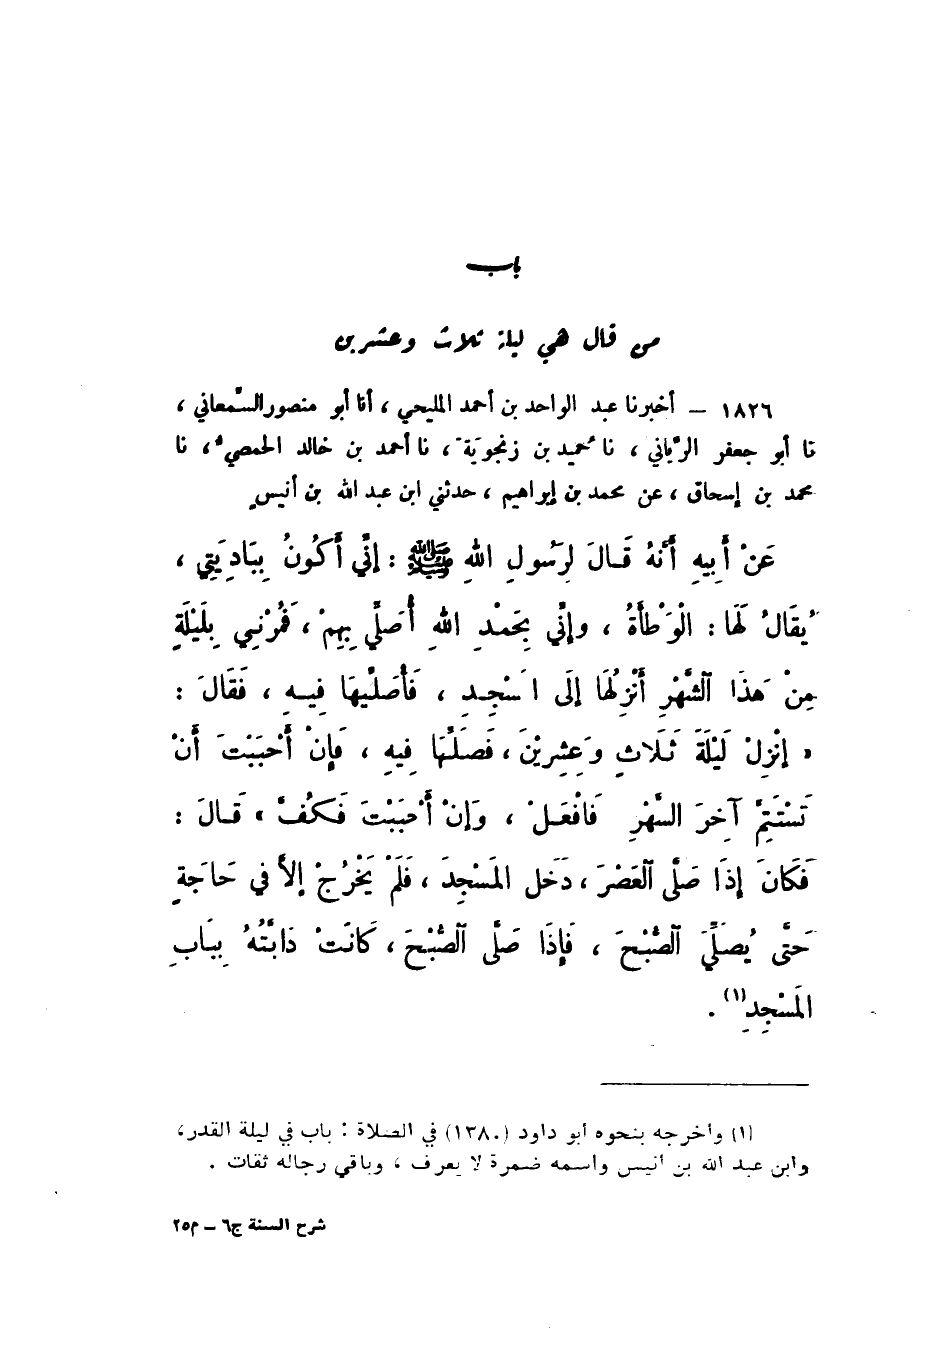 باب
من قال هي ليلة ثلاث وعشرين
١٨٢٦ – أخبرنا عبد الواحد بن أحمد المليحي ، أنا أبو منصور السَّمعاني ،
نا أبو جعفر الرَّيَّاني ، نا حُميد بن زنجويَة ، نا أحمد بن خالد الحمصي ، نا
محمد بن إسحاق ، عن محمد بن إبراهيم ، حدثني ابن عبد الله بن أنيسٍ
عَنْ أَبِيهِ أَنَّهُ قَالَ لِرَسُولِ اللهِ ﷺ : إِنِّي أَكُونُ بِبَادِيَتِي ،
يُقَالُ لَهَا : الْوَطْأَةُ ، وإِنِّي بِحَمْدِ اللهِ أُصَلِّي بِهِمْ ، فَمُرْنِي بِلَيْلَةٍ
مِنْ هَذَا الشَّهْرِ أَنْزِلُهَا إِلَى المَسْجِدِ ، فَأُصَلِّيهَا فِيهِ ، فَقَالَ :
« إِنْزِلْ لَيْلَةَ ثَلَاثٍ وَعِشْرِيْنَ ، فَصَلِّهَا فِيهِ ، فَإِنْ أَحْبَبْتَ أَنْ
تَسْتَتِمَّ آخِرَ الشَّهْرِ فَافْعَلْ ، وَإِنْ أَحْبَبْتَ فَكُفَّ » قَالَ :
فَكَانَ إِذَا صَلَّى العَصْرَ ، دَخَلَ المَسْجِدَ ، فَلَمْ يَخْرُجْ إِلاَّ فِي حَاجَةٍ
حَتَّى يُصَلِّيَ الصُّبْحَ ، فَإِذَا صَلَّى الصُّبْحَ ، كَانَتْ دَابَّتُهُ بِبَابِ
المَسْجِدِ (١) .
(١) وأخرجه بنحوه أبو داود (١٣٨٠) في الصلاة : باب في ليلة القدر ،
وابن عبد الله بن أنيس واسمه ضمرة لا يعرف ، وباقي رجاله ثقات .
شرح السنة ج٦ – م٢٥